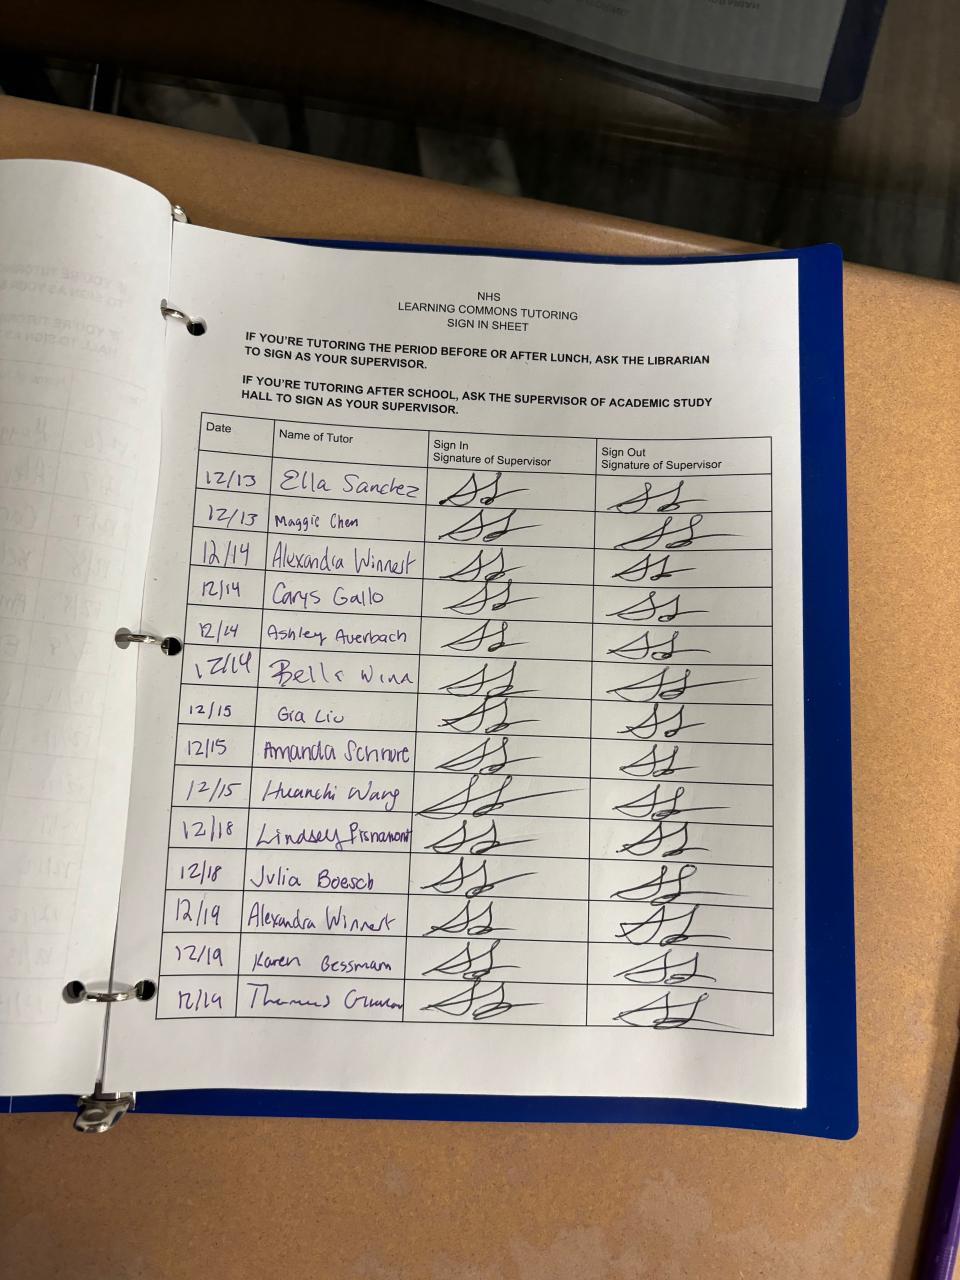 NHS
LEARNING COMMONS TUTORING
SIGN IN SHEET
IF YOU'RE TUTORING THE PERIOD BEFORE OR AFTER LUNCH, ASK THE LIBRARIAN
TO SIGN AS YOUR SUPERVISOR.
IF YOU'RE TUTORING AFTER SCHOOL, ASK THE SUPERVISOR OF ACADEMIC STUDY
HALL TO SIGN AS YOUR SUPERVISOR.
Date Name of Tutor Sign In Sign Out
Signature of Supervisor Signature of Supervisor
12/13 Ella Sanchez
12/13 Maggie Chen
12/14 Alexandra Winnert
12/14 Carys Gallo
12/14 Ashley Auerbach
12/14 Bella Winn
12/15 Gia Liu
12/15 Amanda Schnure
12/15 Huanchi Wang
12/18 Lindsey
12/18 Julia Boesch
12/19 Alexandra Winnert
12/19 Karen Gessmam
12/19